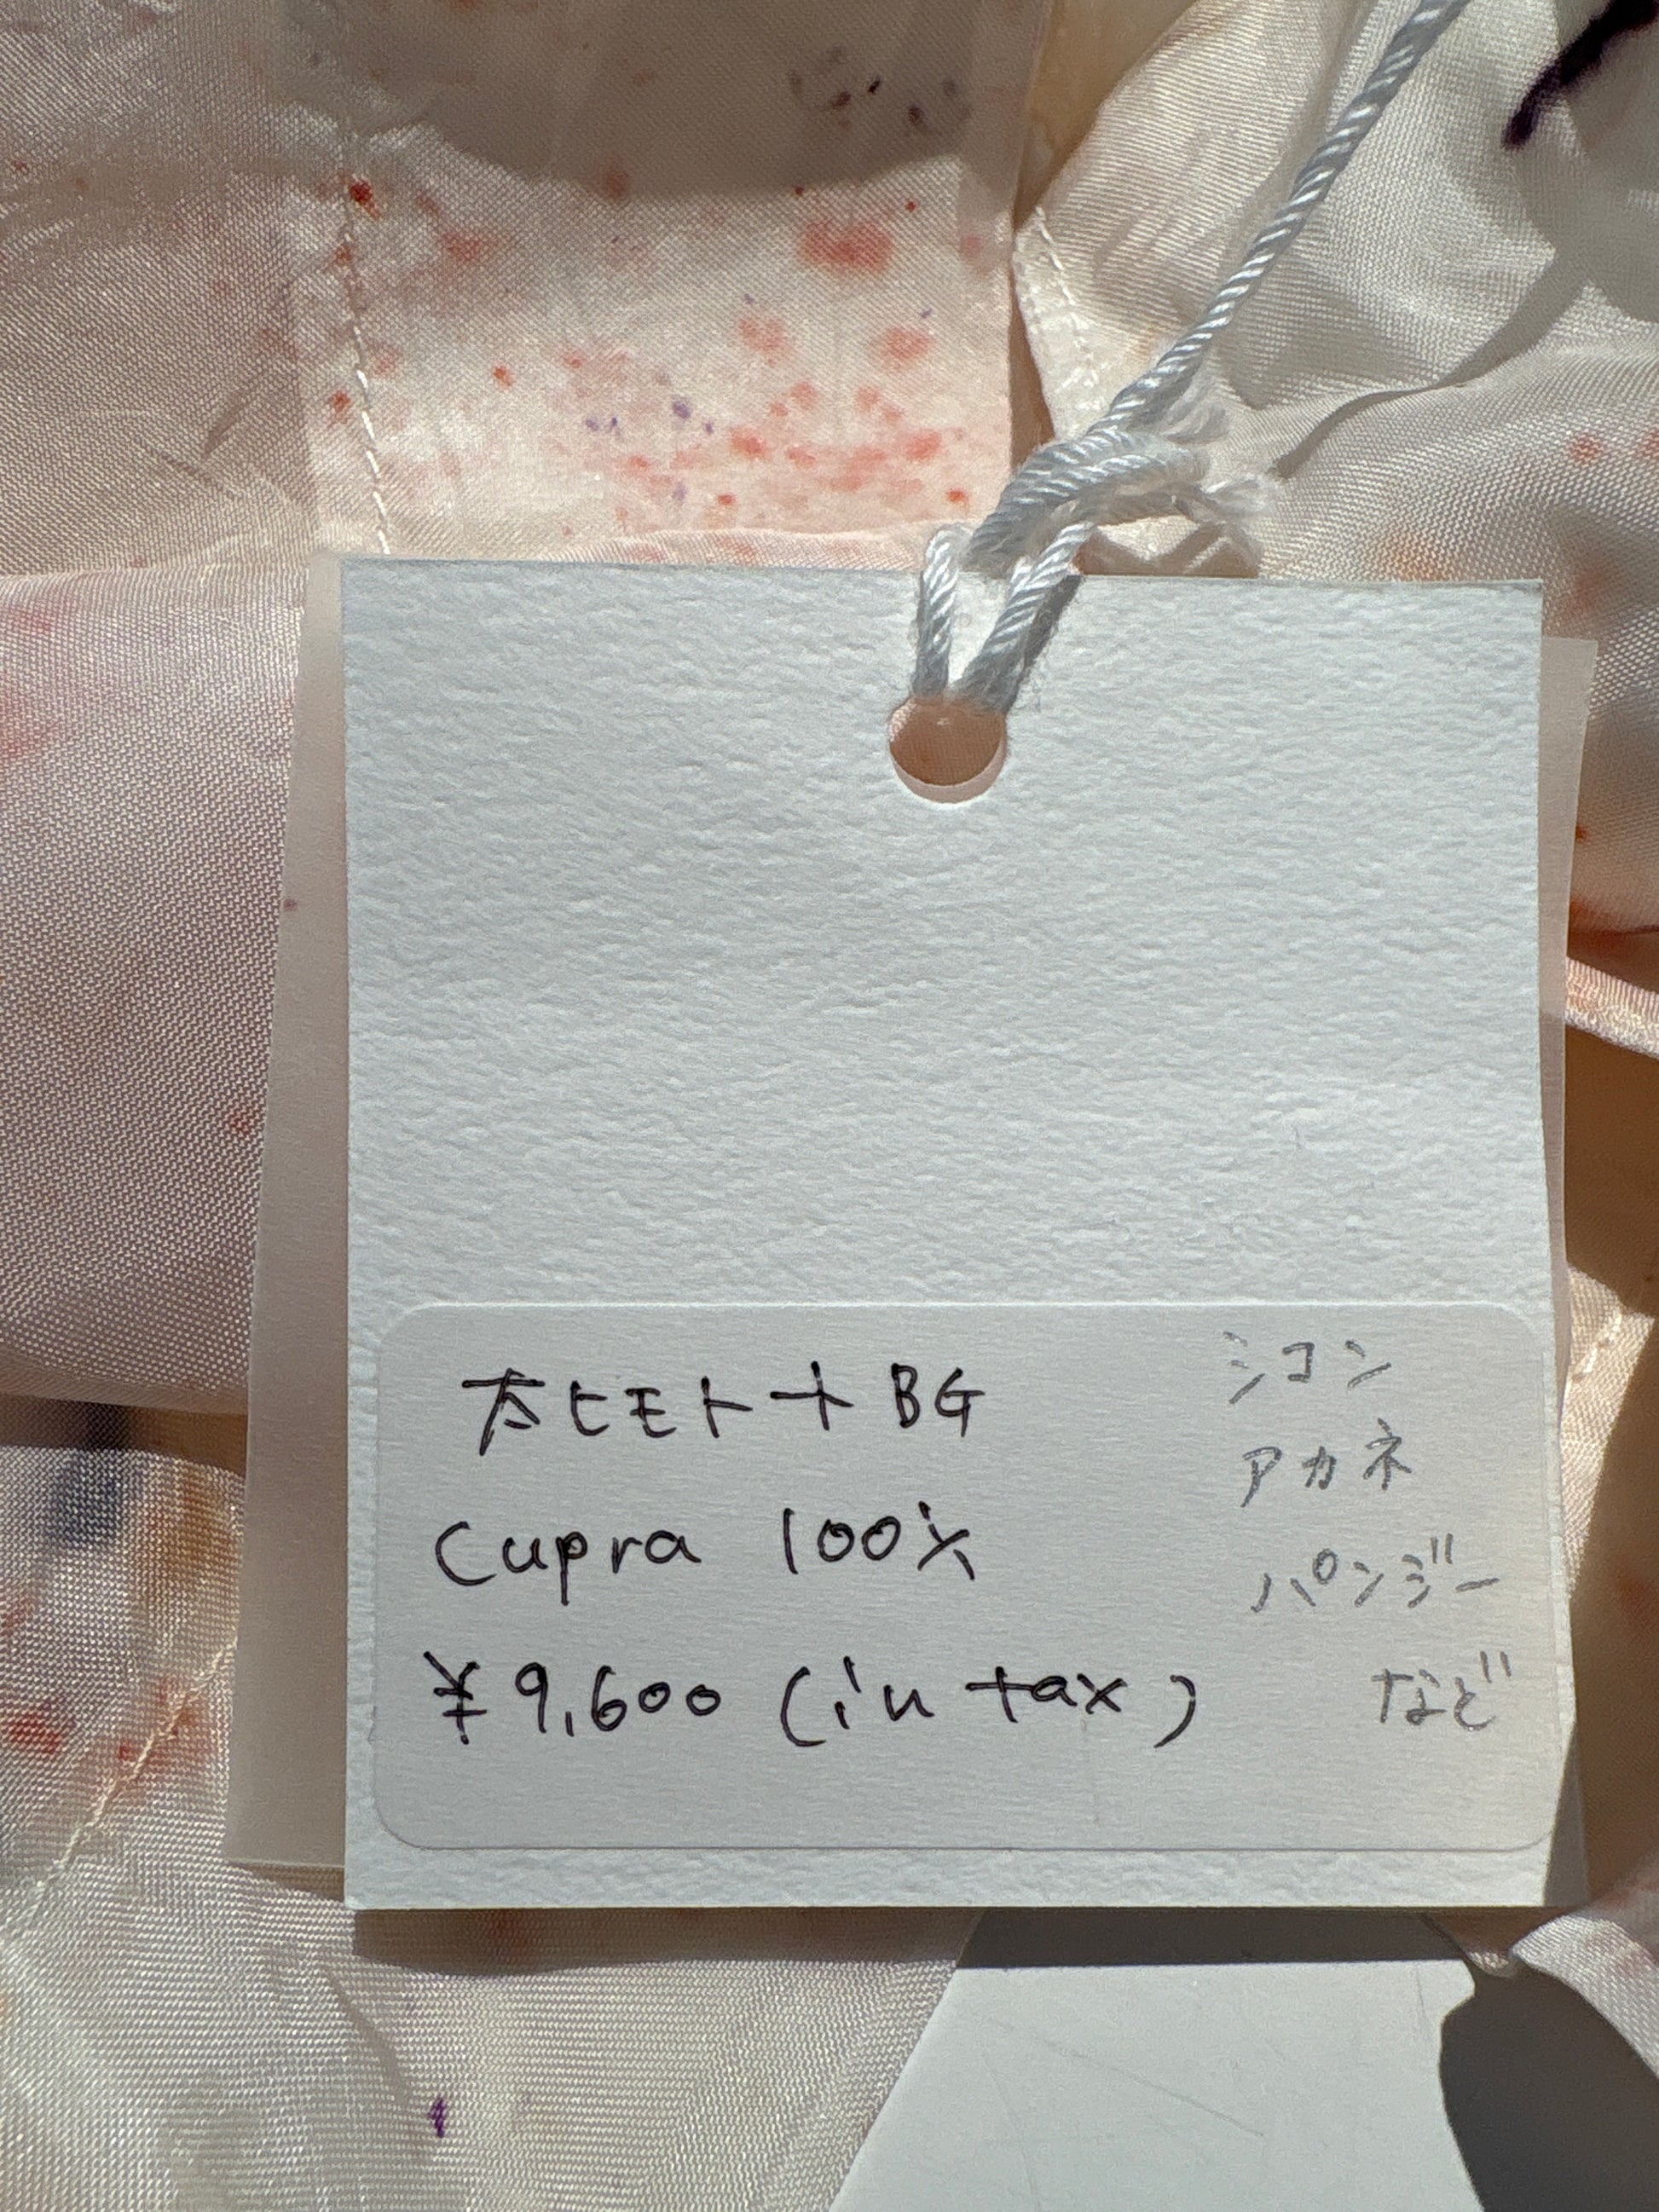 太ヒモトート BG
Cupra 100%
¥9,600 (in tax)
シコン
アカネ
パンジー
など